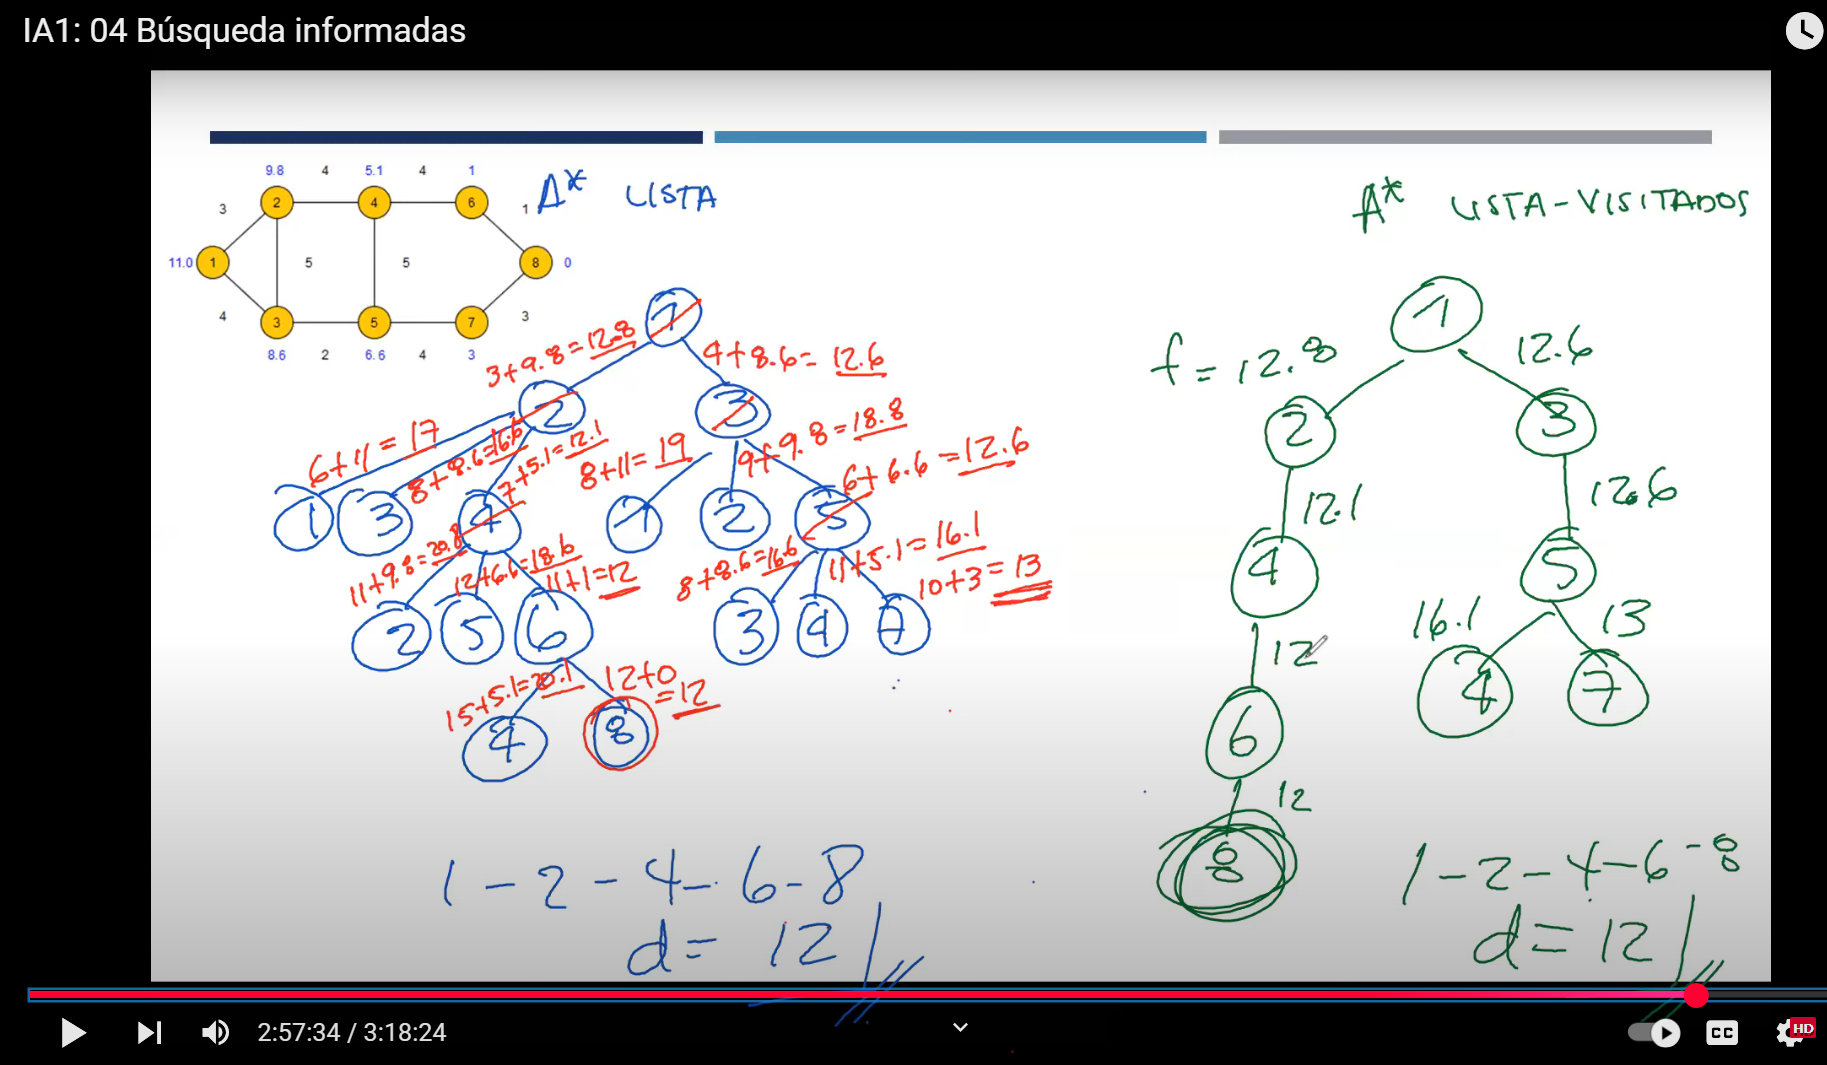 IA1: 04 Búsqueda informadas
9.8 4 5.1 4 1
2 4 6
3 1
11.0 1 5 5 8 0
4 3
3 5 7
8.6 2 6.6 4 3
A* LISTA
A* LISTA-VISITADOS
1
3+9.8=12.8
4+8.6=12.6
2 3
6+11=17
8+8.6=16.6
7+5.1=12.1
8+11=19
9+9.8=18.8
6+6.6=12.6
1 3 4 1 2 5
11+9.8=20.8
12+6.6=18.6
11+1=12
8+8.6=16.6
11+5.1=16.1
10+3=13
2 5 6 3 4 7
15+5.1=20.1
12+0
=12
4 8
1-2-4-6-8
d=12
1
f=12.8 12.6
2 3
12.1 12.6
4 5
12 16.1 13
4 7
6
12
8
1-2-4-6-8
d=12
2:57:34 / 3:18:24
CC HD